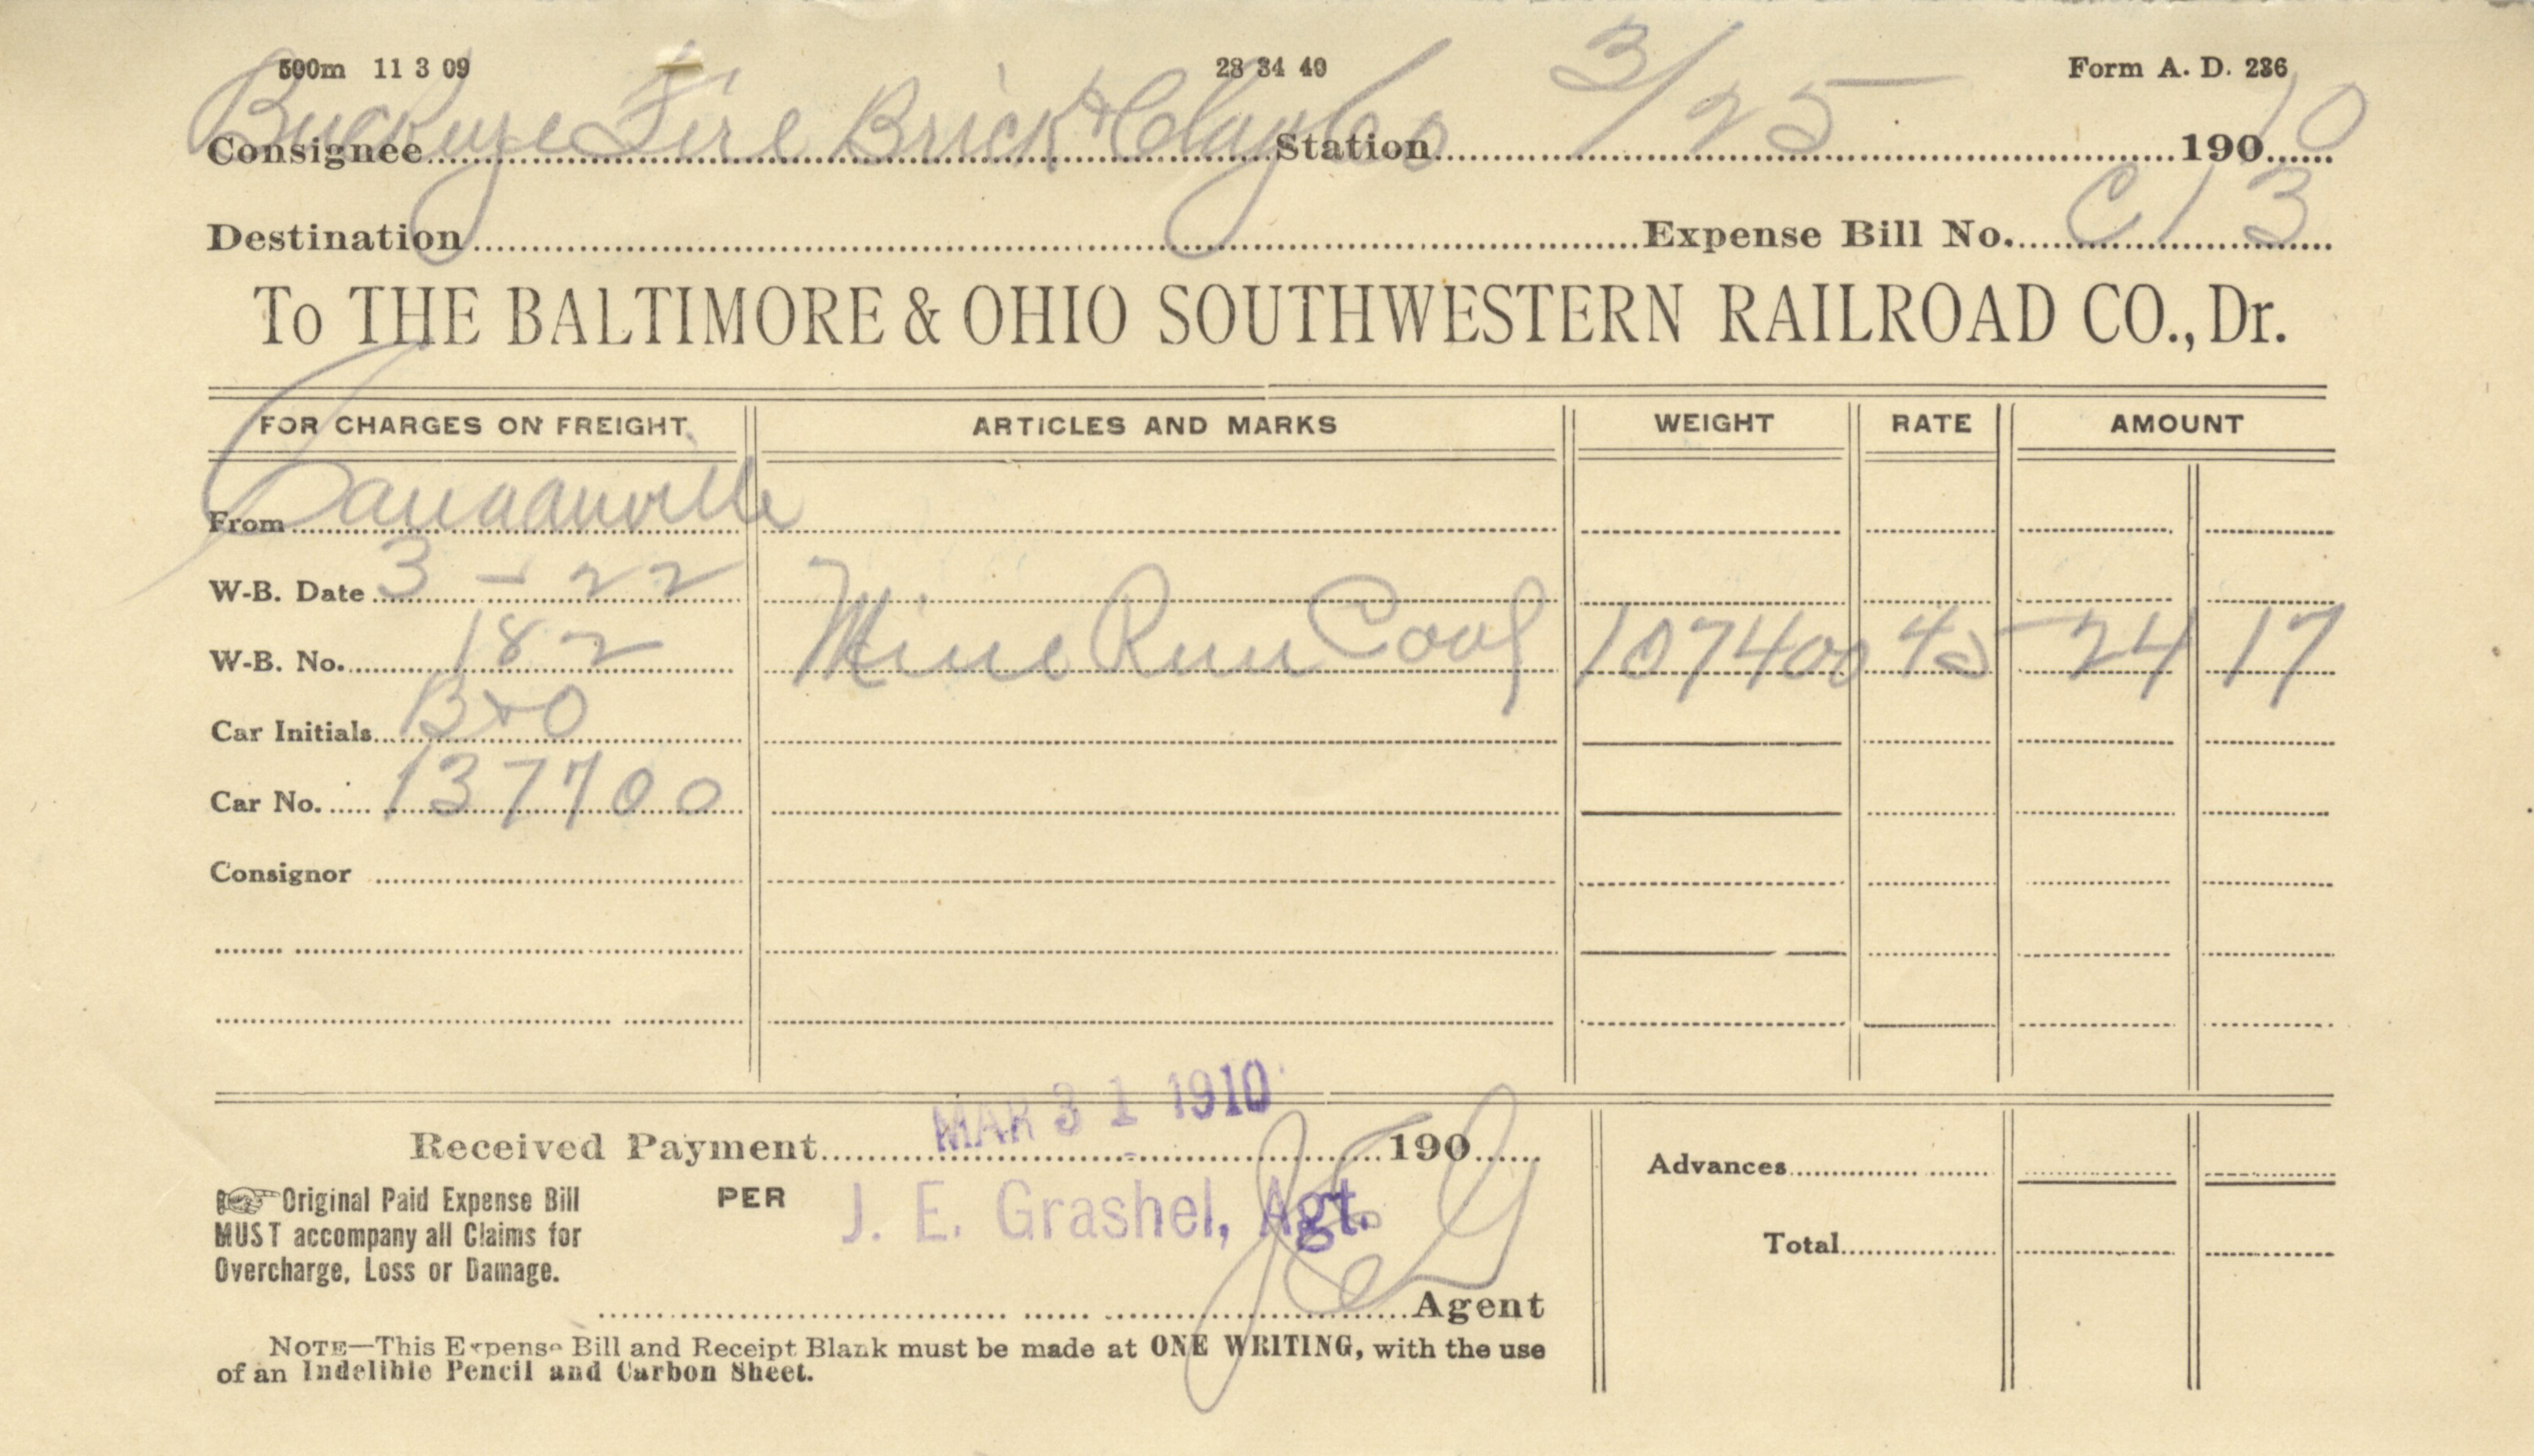 500m 11 3 09 28 34 40 Form A. D. 286
Consignee Buckeye Fire Brick & Clay Co Station 3/25 190 10
Destination Expense Bill No. C 13
To THE BALTIMORE & OHIO SOUTHWESTERN RAILROAD CO., Dr.
FOR CHARGES ON FREIGHT. ARTICLES AND MARKS WEIGHT RATE AMOUNT
From
W-B. Date 3 - 22
W-B. No. 182 Mine Run Coal 107400 45 24 17
Car Initials B&O
Car No. 137700
Consignor
MAR 31 1910
Received Payment 190
Advances
Original Paid Expense Bill
MUST accompany all Claims for
Overcharge, Loss or Damage.
PER J. E. Grashel, Agt.
JEG
Total
Agent
NOTE—This Expense Bill and Receipt Blank must be made at ONE WRITING, with the use
of an Indelible Pencil and Carbon Sheet.